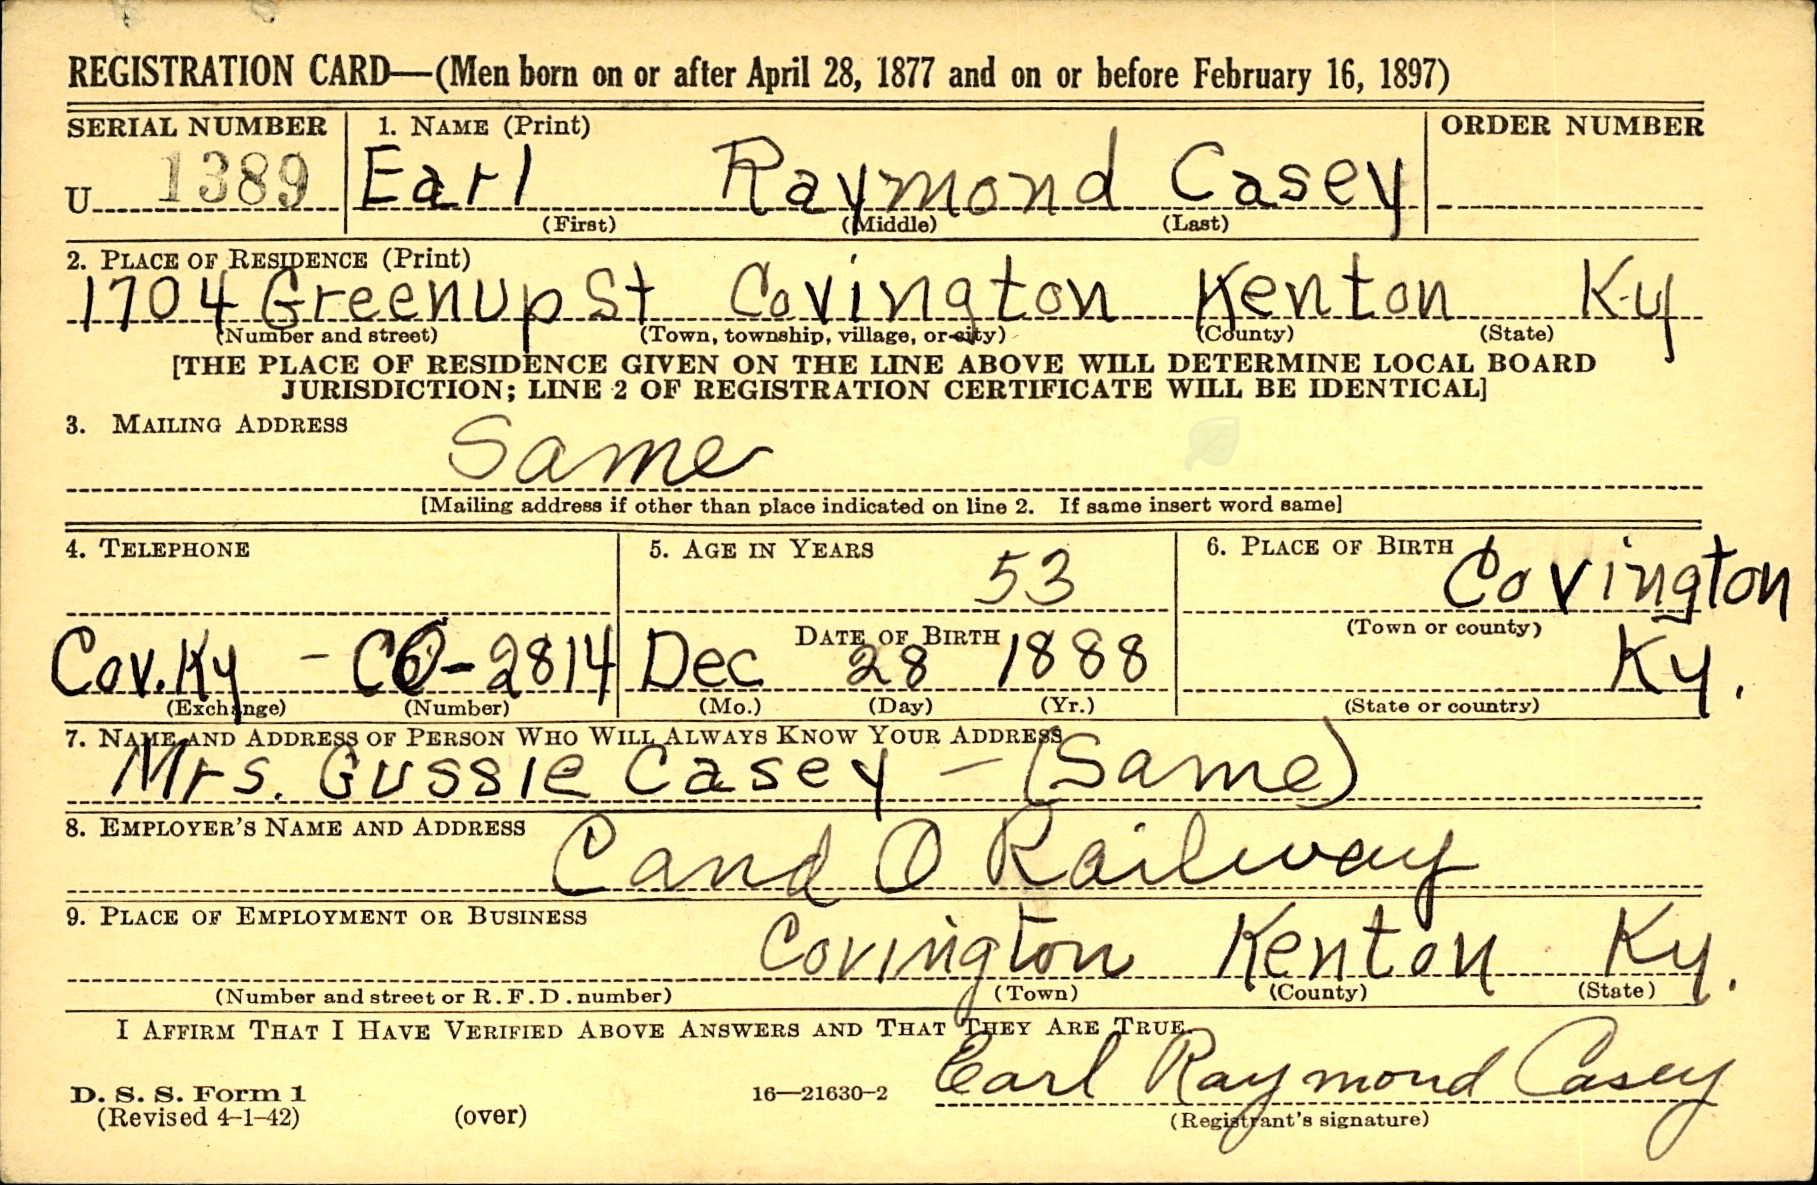 REGISTRATION CARD—(Men born on or after April 28, 1877 and on or before February 16, 1897)
SERIAL NUMBER 1. NAME (Print) ORDER NUMBER
U 1389 Earl Raymond Casey
(First) (Middle) (Last)
2. PLACE OF RESIDENCE (Print)
1704 Greenup St Covington Kenton Ky
(Number and street) (Town, township, village, or city) (County) (State)
[THE PLACE OF RESIDENCE GIVEN ON THE LINE ABOVE WILL DETERMINE LOCAL BOARD
JURISDICTION; LINE 2 OF REGISTRATION CERTIFICATE WILL BE IDENTICAL]
3. MAILING ADDRESS
Same
[Mailing address if other than place indicated on line 2. If same insert word same]
4. TELEPHONE 5. AGE IN YEARS 6. PLACE OF BIRTH
53 Covington
DATE OF BIRTH (Town or county)
Cov. Ky – CO-2814 Dec 28 1888 Ky.
(Exchange) (Number) (Mo.) (Day) (Yr.) (State or country)
7. NAME AND ADDRESS OF PERSON WHO WILL ALWAYS KNOW YOUR ADDRESS
Mrs. Gussie Casey – (Same)
8. EMPLOYER'S NAME AND ADDRESS
C and O Railway
9. PLACE OF EMPLOYMENT OR BUSINESS
Covington Kenton Ky.
(Number and street or R. F. D. number) (Town) (County) (State)
I AFFIRM THAT I HAVE VERIFIED ABOVE ANSWERS AND THAT THEY ARE TRUE.
Earl Raymond Casey
D. S. S. Form 1 16—21630-2
(Revised 4-1-42) (over) (Registrant's signature)